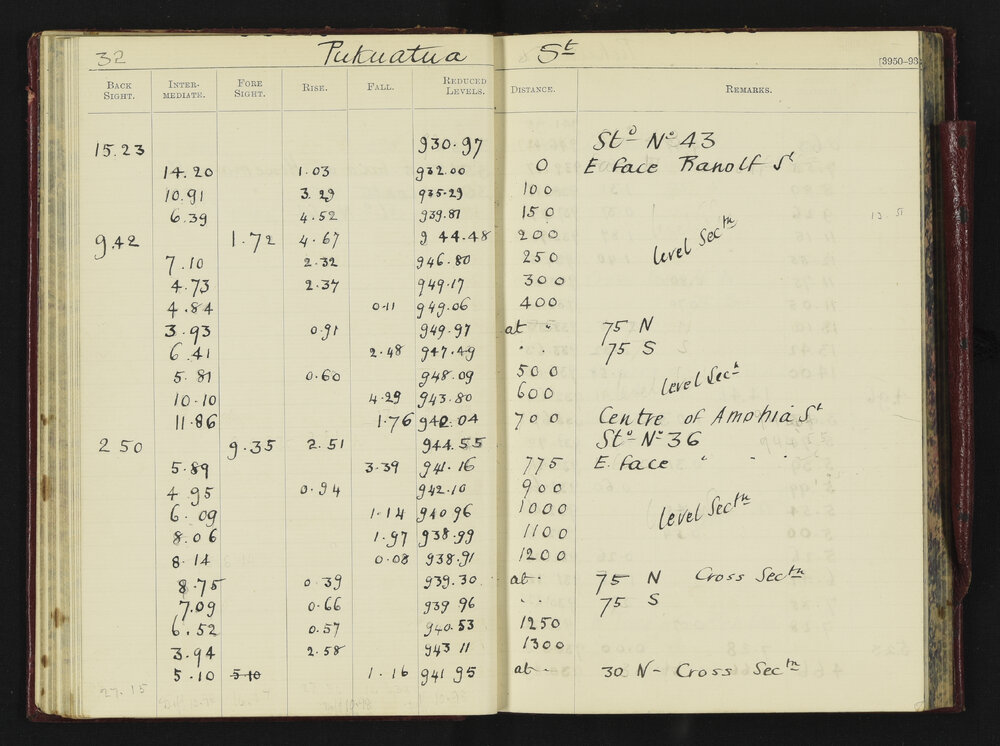 32 Pukuatua St
[3950-93
BACK SIGHT. INTER-MEDIATE. FORE SIGHT. RISE. FALL. REDUCED LEVELS. DISTANCE. REMARKS.
15.23 930.97 Stn No 43
14.20 1.03 932.00 0 E face Ranolf St
10.91 3.29 935.29 100
6.39 4.52 939.81 150
9.42 1.72 4.67 944.48 200 level Sectn
7.10 2.32 946.80 250
4.73 2.37 949.17 300
4.84 0.11 949.06 400
3.93 0.91 949.97 at " 75 N
6.41 2.48 947.49 " " 75 S
5.81 0.60 948.09 500 level Sectn
10.10 4.29 943.80 600
11.86 1.76 942.04 700 Centre of Amohia St
2 50 9.35 2.51 944.55 Stn No 36
5.89 3.39 941.16 775 E. face " " "
4.95 0.94 942.10 900
6.09 1.14 940 96 1000 level Sectn
8.06 1.97 938.99 1100
8.14 0.08 938.91 1200
8.75 0.39 939.30 at " 75 N Cross Sectn
7.09 0.66 939 96 " " 75 S
6.52 0.57 940.53 1250
3.94 2.58 943 11 1300
5.10 5 10 1.16 941 95 at " 30 N - Cross Sectn
27.15